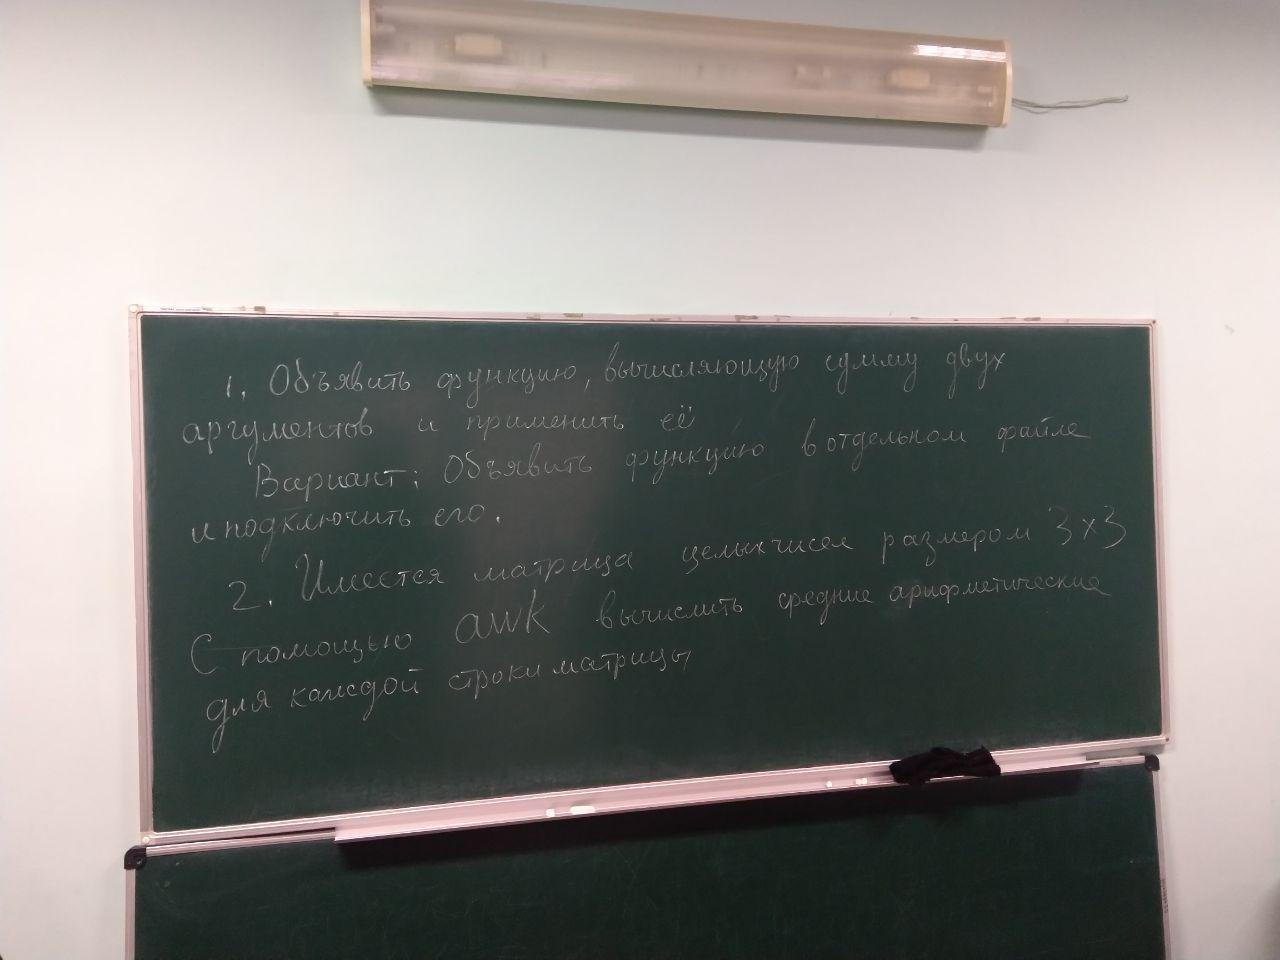 1. Объявить функцию, вычисляющую сумму двух
аргументов и применить её
Вариант: Объявить функцию в отдельном файле
и подключить его.
2. Имеется матрица целых чисел размером 3x3
С помощью awk вычислить средние арифметические
для каждой строки матрицы